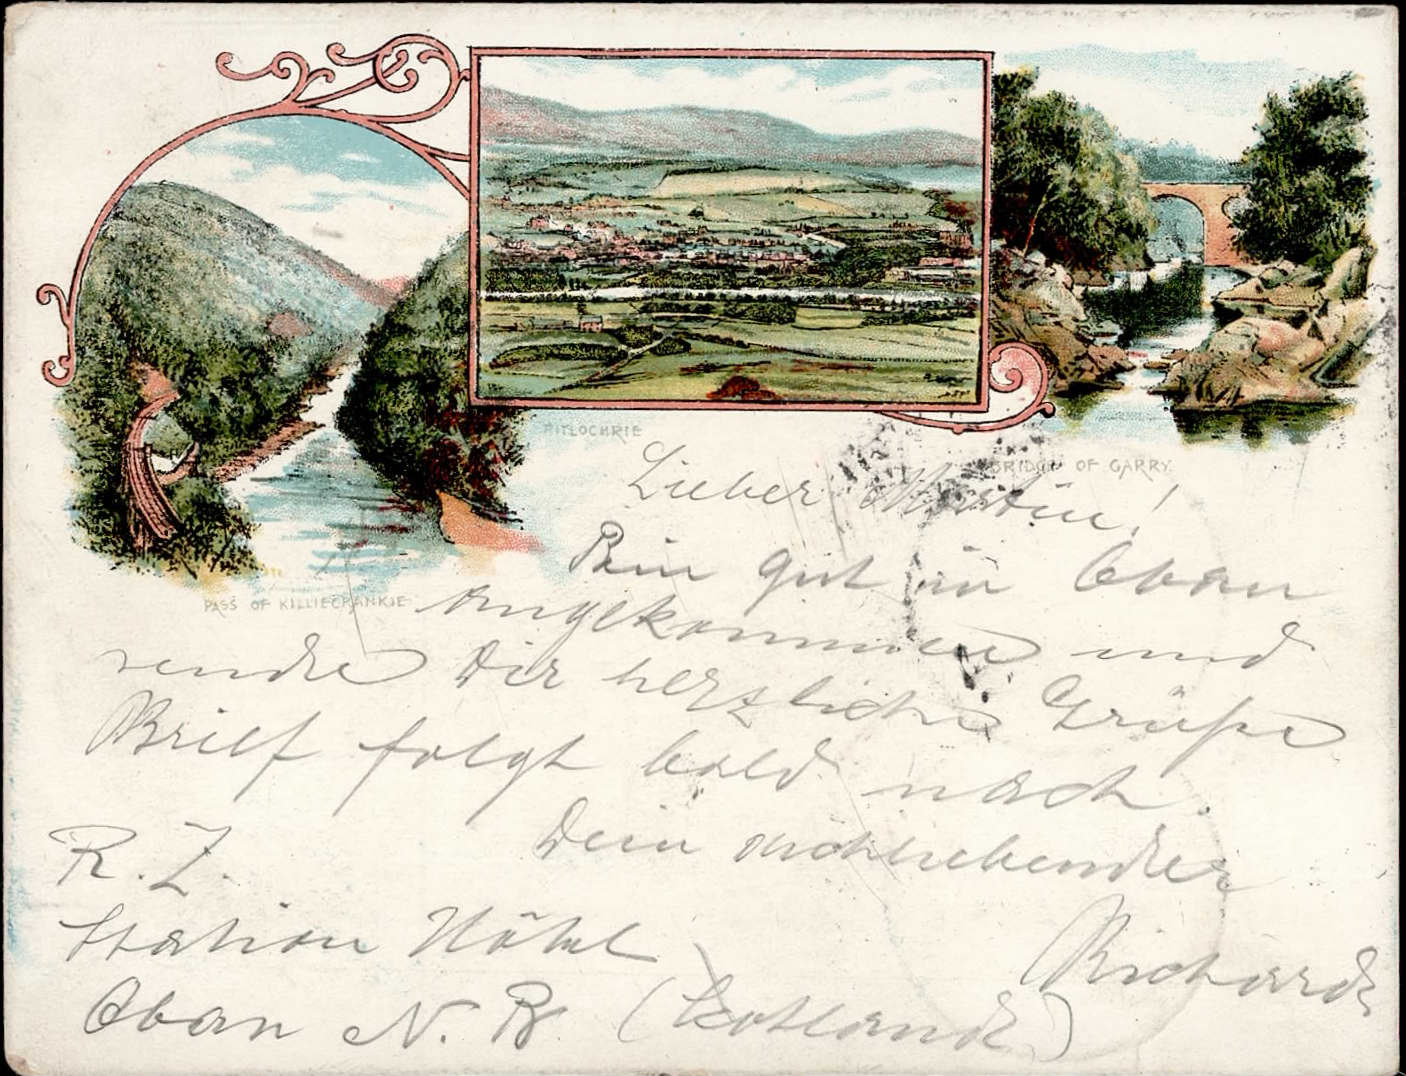 PITLOCHRIE
BRIDGE OF GARRY.
PASS OF KILLIECRANKIE
Lieber Martin!
Bin gut in Oban
Angekommen und
sende Dir herzliche Grüße
Brief folgt bald nach.
Dein Dichliebender
Richard
R. Z.
Station Hôtel
Oban N. B. (Scotland)